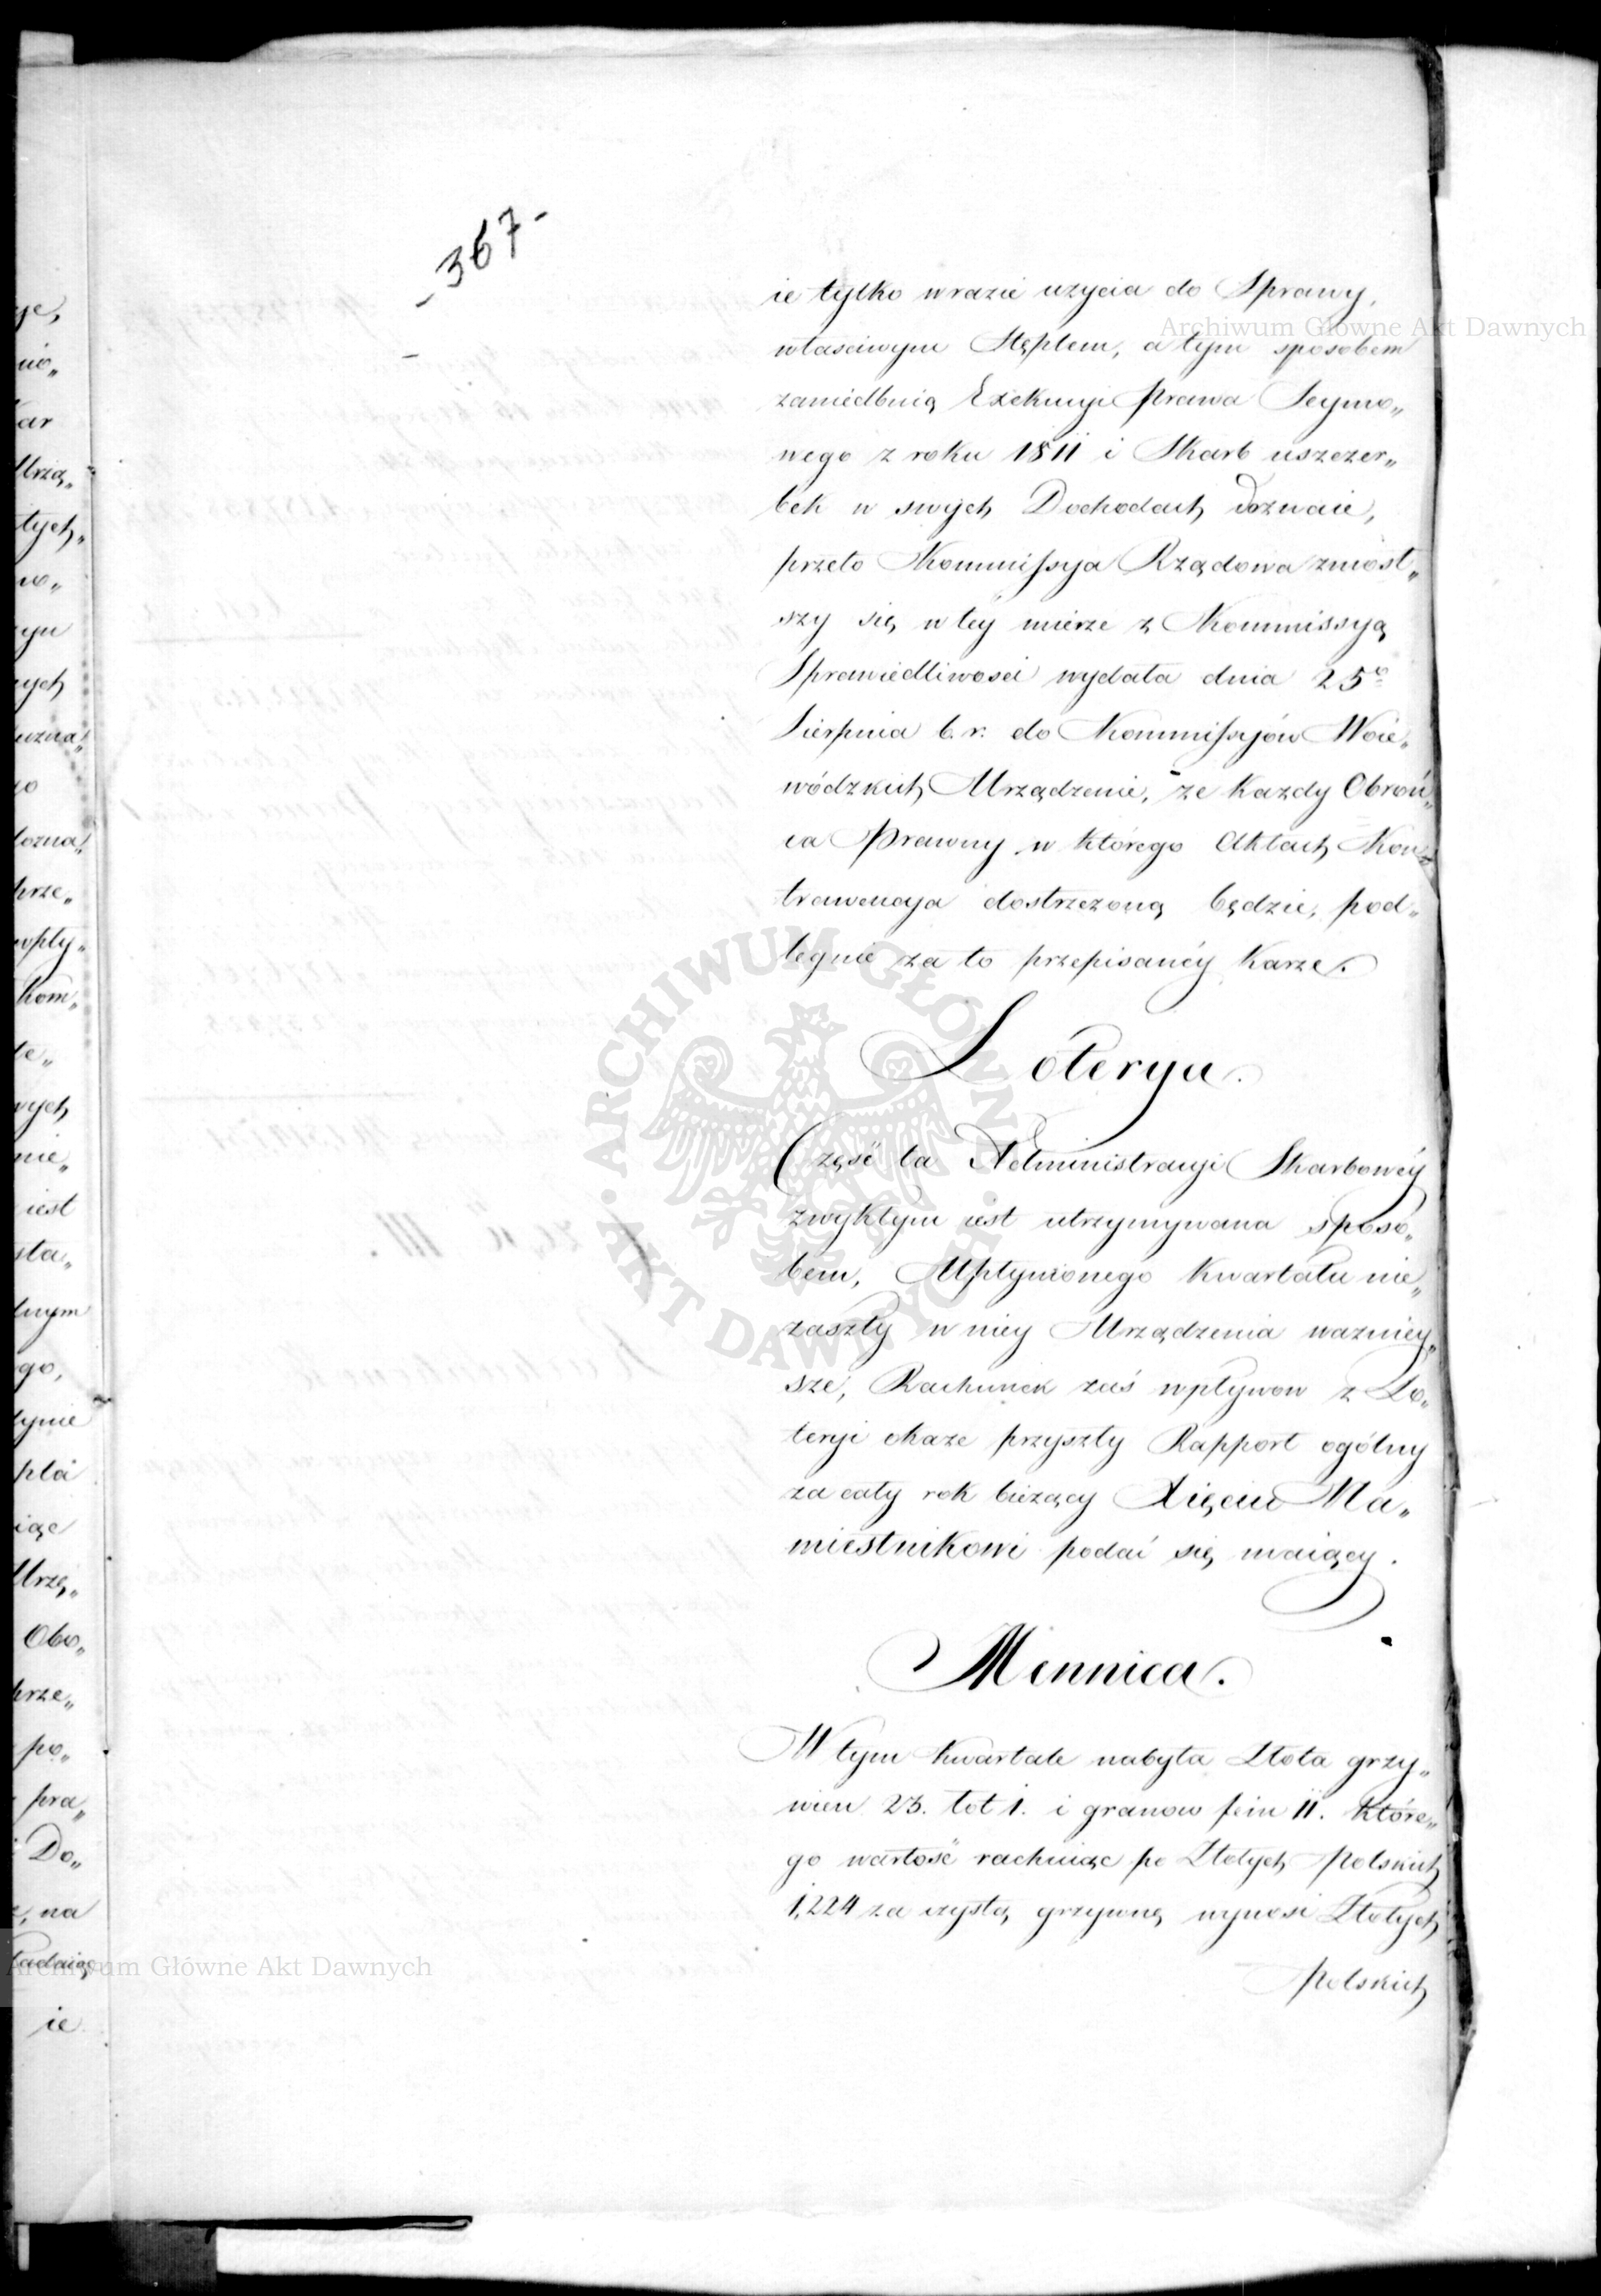 -367-
ie tylko w razie użycia do Sprawy,
własciwym Stęplem, a tym sposobem
zaniedbuią Exekucyi Prawa Seymo„
wego z roku 1811 i Skarb uszczer„
bek w swych Dochodach doznaie,
przeto Kommissya Rządowa zniosł„
szy się w téy mierze z Kommissyą
Sprawiedliwosci wydała dnia 25º
Sierpnia b. r. do Kommissyów Woie„
wódzkich Urządzenie, że każdy Obroń„
ca Prawny w którego Aktach Kon„
trawencya dostrzeżoną będzie, pod„
legnie za to przepisanéy karze.
Loterya.
Część ta Administracyi Skarbowéy
zwykłym iest utrzymywana sposo„
bem, Upłynionego Kwartału nie„
zaszły w niey Urządzenia ważniey„
sze, Rachunek zaś wpływow z Lo„
teryi okaże przyszły Rapport ogólny
za cały rok bieżący Xięciu Na„
miestnikowi podać się maiący.
Mennica.
W tym Kwartale nabyła Złota grzy„
wien 23. łot 1. i granow fein 11. które„
go wartość rachuiąc po Złotych Polskich
1,224 za czystą grzywnę wynosi Złotych
Polskich
yc,
nio„
kar
Urzą„
tych„
wo„
ym
nych
uzna„
go
dozna„
prze„
wpły„
kom„
te„
wych
nie„
iest
sta„
lnym
go,
tynie
pła
iąc
Urzę„
Obo„
prze„
po„
pra„
i Do„
e, na
ładaiąc
ie
Archiwum Główne Akt Dawnych
ARCHIWUM GŁÓWNE AKT DAWNYCH
Archiwum Główne Akt Dawnych